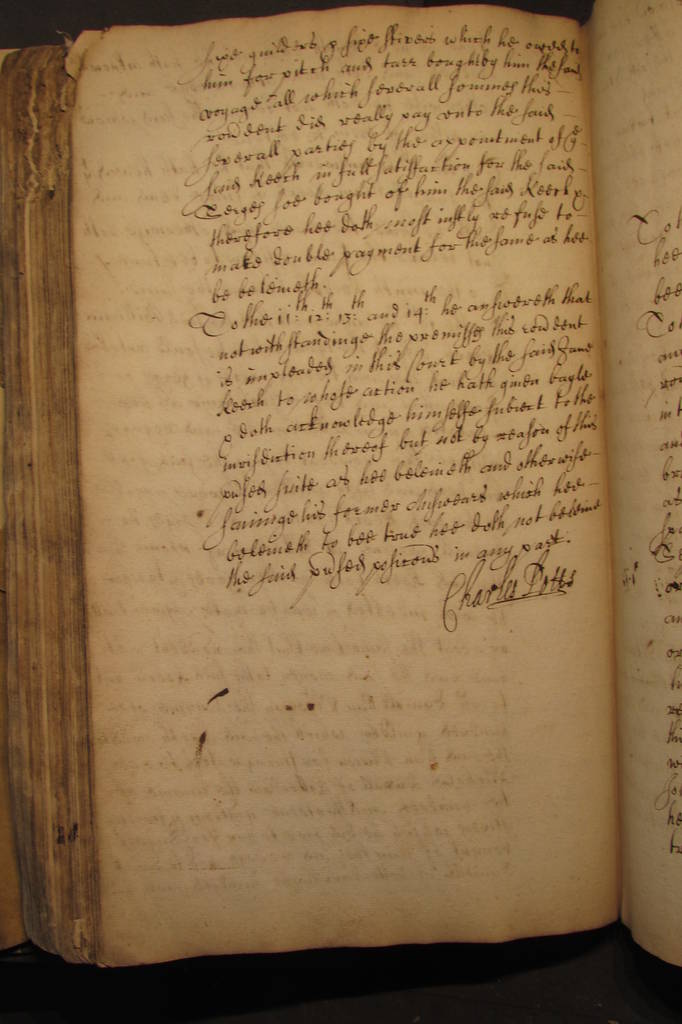 sixe guilders & sixe stivers which he owed to
him for pitch and tarr bought by him the said
voyage all which severall sommes this
rondent did really pay unto the said
severall parties by the appointment of ye
said Keech in full satisfaction for the said
Serges soe bought of him the said Keech &
therefore hee doth most justly refuse to
make double payment for the same as hee
beleiveth.
To the 11th: 12:th 13:th and 14:th he answereth that
notwithstandinge the premisses this rondent
is impleaded in this Court by the said Jane
Keech to whose action he hath given bayle
& doth acknowledge himselfe subiect to the
iurisdiction thereof but not by reason of this
prtsed suite as hee beleiveth and otherwise
savinge his former Answears which hee
beleiveth to bee true hee doth not beleive
the said prtsed posicons in any part.
Charles Potts
To
hee
bee
To